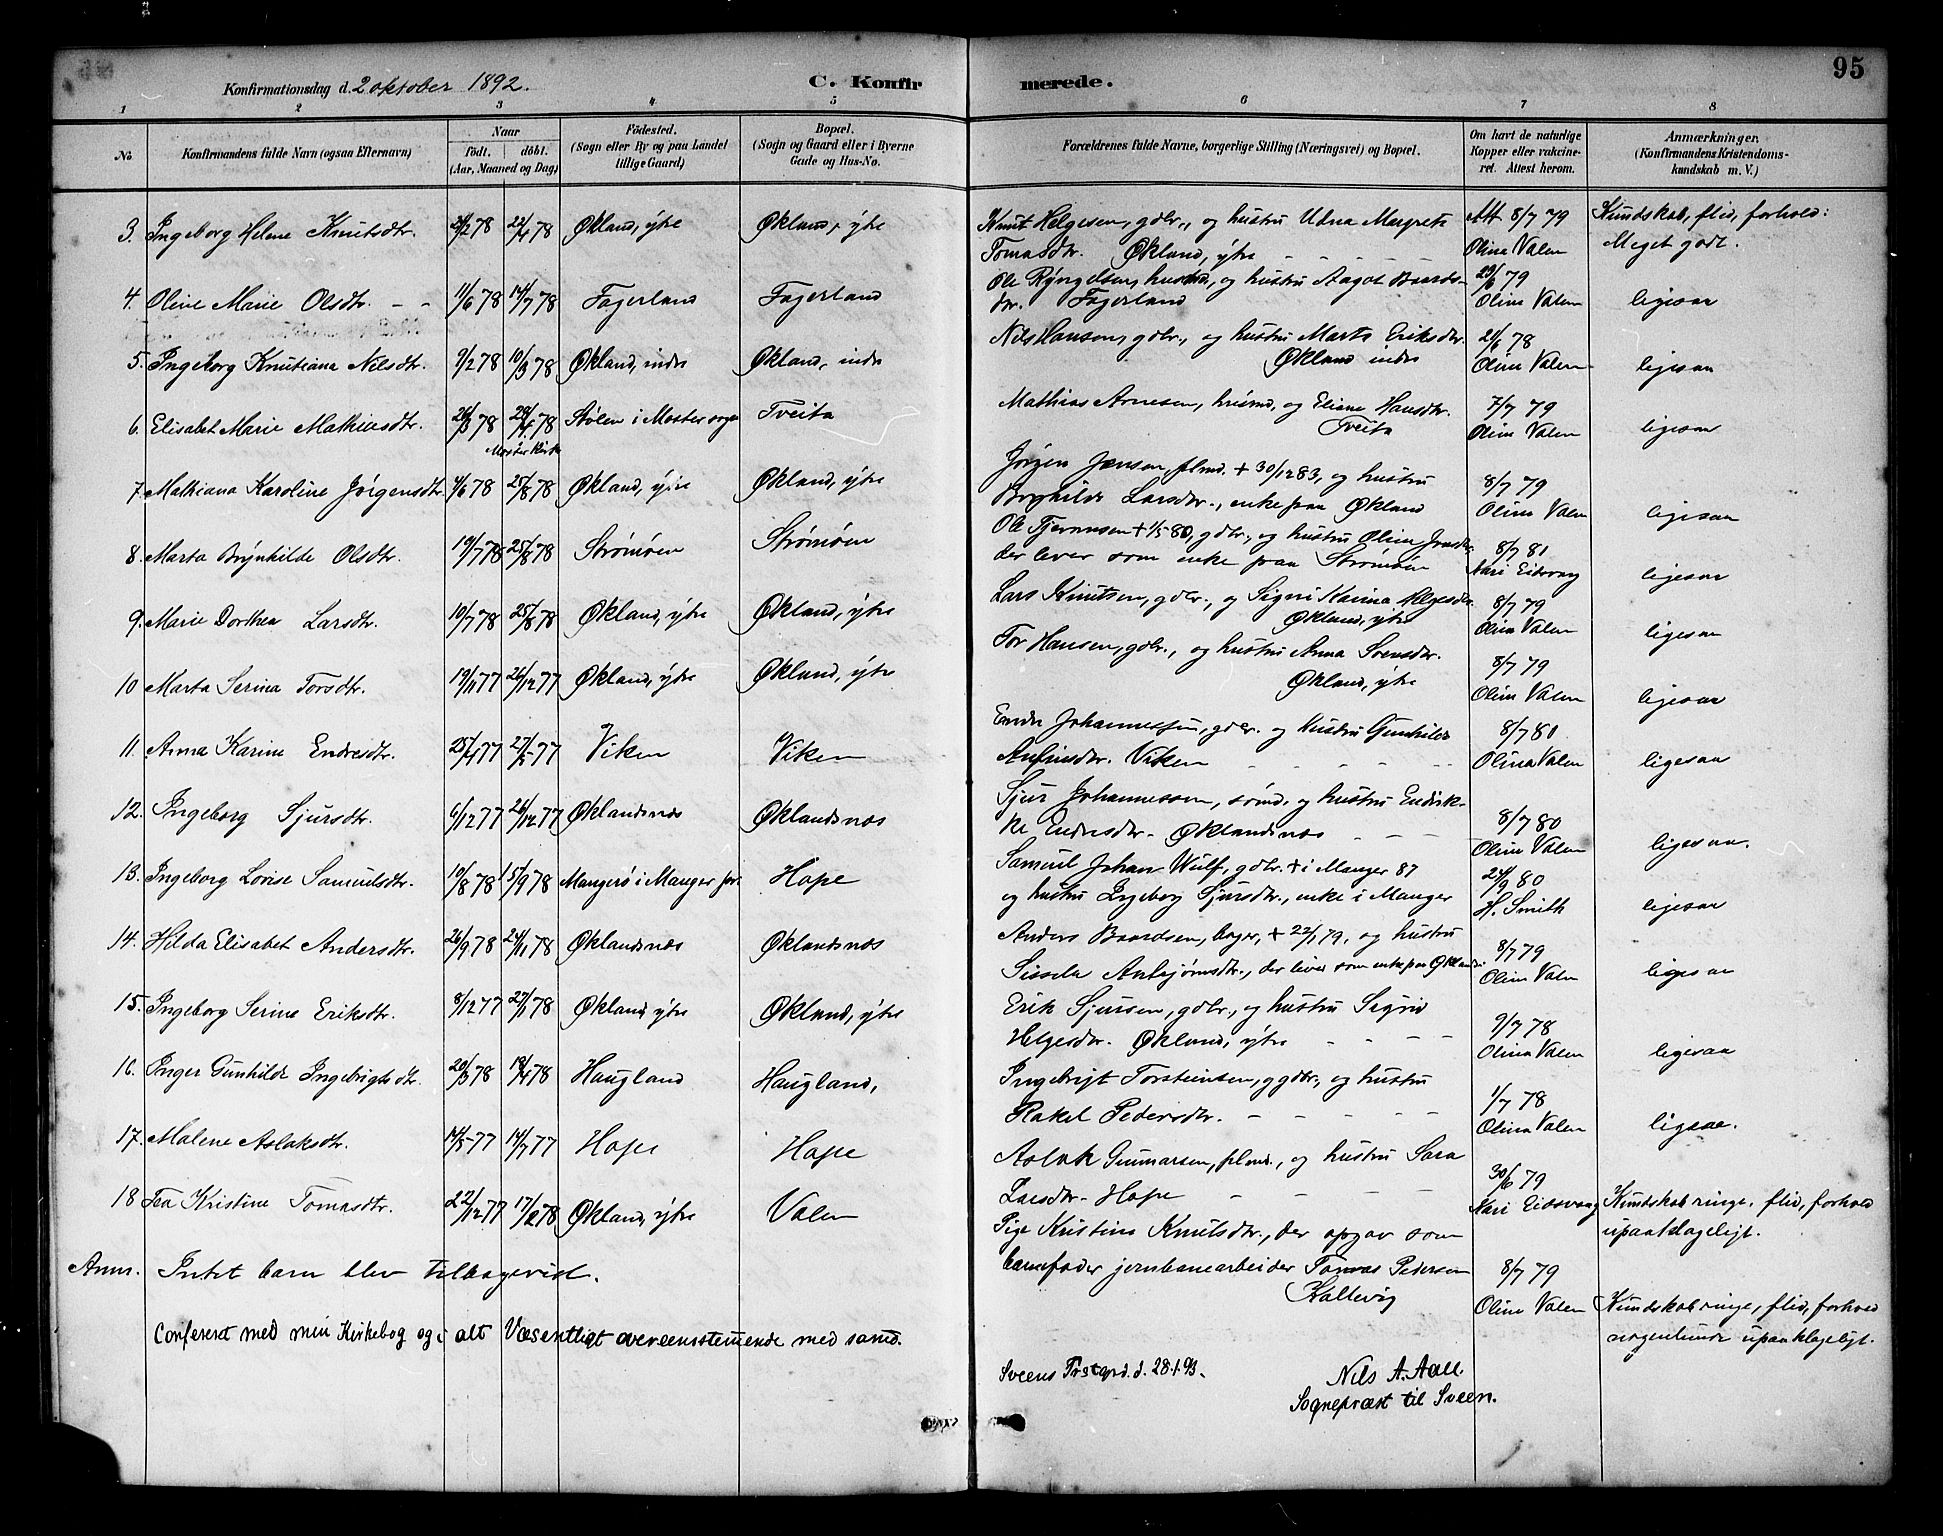 Konfirmationsdag d. 2 oktober 1892. C. Konfirmerede. 95
1 2 3 4 5 6 7 8
No Konfirmandens fulde Navn (ogsaa Efternavn) Naar födt. döbt. (Aar, Maaned og Dag) Födested. (Sogn eller By og paa Landet tillige Gaard) Bopæl. (Sogn og Gaard eller i Byerne Gade og Hus-No. Forældrenes fulde Navne, borgerlige Stilling (Næringsvei) og Bopæl. Om havt de naturlige Kopper eller vakcineret. Attest herom. Anmærkninger. (Konfirmandens Kristendomskundskab m. V.)
3. Ingeborg Helene Knutsdtr. 22/4 78 Økland, ytre Økland, ytre Knut Helgesen, gdbr., og hustru Udna Margrete Att 8/7 79 Kundskab, flid, forhold:
Tomasdtr. Økland, ytre - - - - Olina Valen Meget godt.
4. Olive Marie Olsdtr. - - 11/6 78 14/7 78 Fagerland Fagerland Ole husmd, og hustru Aagot Baards- 23/6 79
dtr. Fagerland Olina Valen ligesaa
5. Ingeborg Knutiana Nilsdtr. 9/2 78 10/3 78 Økland, indre Økland, indre Nils Hansen, gdbr., og hustru Marta Eriksdtr. 21/6 78
Økland indre Olina Valen ligesaa
6. Elisabet Marie Mathiasdtr. 26/3 78 28/4 78 Moster Kirke Stølen i Moster sogn Tveita Mathias Arnesen, husmd, og Eliene Hansdtr. 7/7 79
Tveita Olina Valen ligesaa
7. Mathiana Karoline Jörgensdtr. 4/6 78 25/8 78 Økland, ytre Økland, ytre Jörgen Jensen, plmd. + 30/12 83, og hustru 8/7 79
Larsdtr., enke paa Økland Olina Valen ligesaa
8. Marta Brynhilde Olsdtr. 19/7 78 25/8 78 Strømøen Strømøen Ole + 1/5 80, gdbr., og hustru Olina 8/7 81
der lever som enke paa Strømøen Kari Eidsvag ligesaa
9. Marie Dorthea Larsdtr. 10/7 78 25/8 78 Økland, ytre Økland, ytre Lars Knutsen, gdbr., og Sigri Karina Helgesdtr. 8/7 79
Økland, ytre Olina Valen ligesaa
10 Marta Serina Torsdtr. 19/11 77 26/12 77 Økland, ytre Økland, ytre Tor Hansen, gdbr., og hustru Anna Svensdtr. 8/7 79
Økland, ytre Olina Valen ligesaa
11. Anna Karine Endresdtr. 25/4 77 27/5 77 Viken Viken Endre Johannessen, gdbr. og hustru Gunhilde 8/7 80
Anfinsdtr. Viken - - - - - Olina Valen ligesaa
12. Ingeborg Sjursdtr. 6/12 77 26/12 77 Øklandsnæs Øklandsnæs Sjur Johannessen, sömd. og hustru Endrik- 8/7 80
ke Endresdtr. Øklandsnæs - - - Olina Valen ligesaa.
13. Ingeborg Lovise Samuelsdtr. 10/8 78 15/9 78 Mangerö i Manger Hope Samuel Johan Wulf, gdbr. + i Manger 87 24/9 80
og hustru Ingeborg Sjursdtr., enke i Manger H. Smith ligesaa
14. Hilda Elisabet Andersdtr. 26/9 78 24/11 78 Øklandsnæs Øklandsnæs Anders Baardsen, bager, + 22/1 79, og hustru 8/7 79
Sissela der lever som enke paa Olina Valen ligesaa
15. Ingeborg Serine Eriksdtr. 8/12 77 27/1 78 Økland, ytre Økland, ytre Erik Sjursen, gdbr., og hustru Sigrid 9/7 78
Helgesdtr. Økland, ytre - - - - Olina Valen ligesaa
16. Inger Gunhilde Ingebrigtsdtr. 20/3 78 18/4 78 Haugland Haugland, Ingebrigt Torsteinsen, ggdbr., og hustru 1/7 78
Rakel Pedersdtr. - - - - - Olina Valen ligsaa.
17. Malene Aslaksdtr. 14/5 77 14/7 77 Hope Hope Aslak Gunnarsen, plmd., og hustru Sara 30/6 79
Larsdtr. Hope - - - - Kari Eidsvaag Kundskab ringe, flid, forhold
upaaklageligt.
18 Tea Kristine Tomasdtr. 22/12 77 17/2 78 Økland, ytre Valen Pige Kristina Knutsdtr., der opgav som
barnefader jernbanearbeider Tomas Pedersen 8/7 79
Kallevig Olina Valen Kundskab ringe, flid, forhold
nogenlunde upaaklageligt.
Anm. Intet barn blev tilbagevist.
Confereret med min Kirkebog og i alt Væsentligt overeensstemmende med samme.
Sveens Prstgrd. d. 28.1.93. Nils A. Aall.
Sogneprest til Sveen.